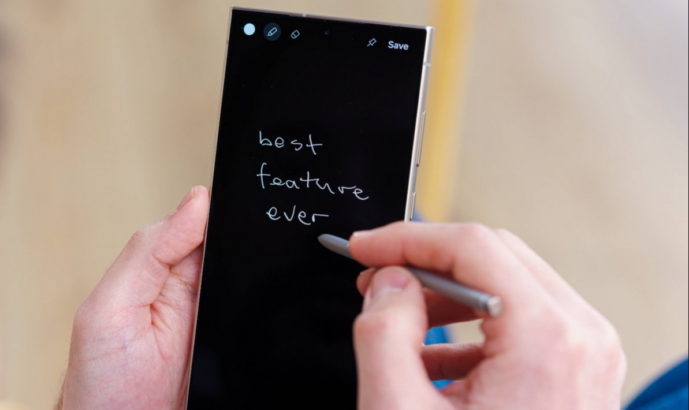 Save
best
feature
ever